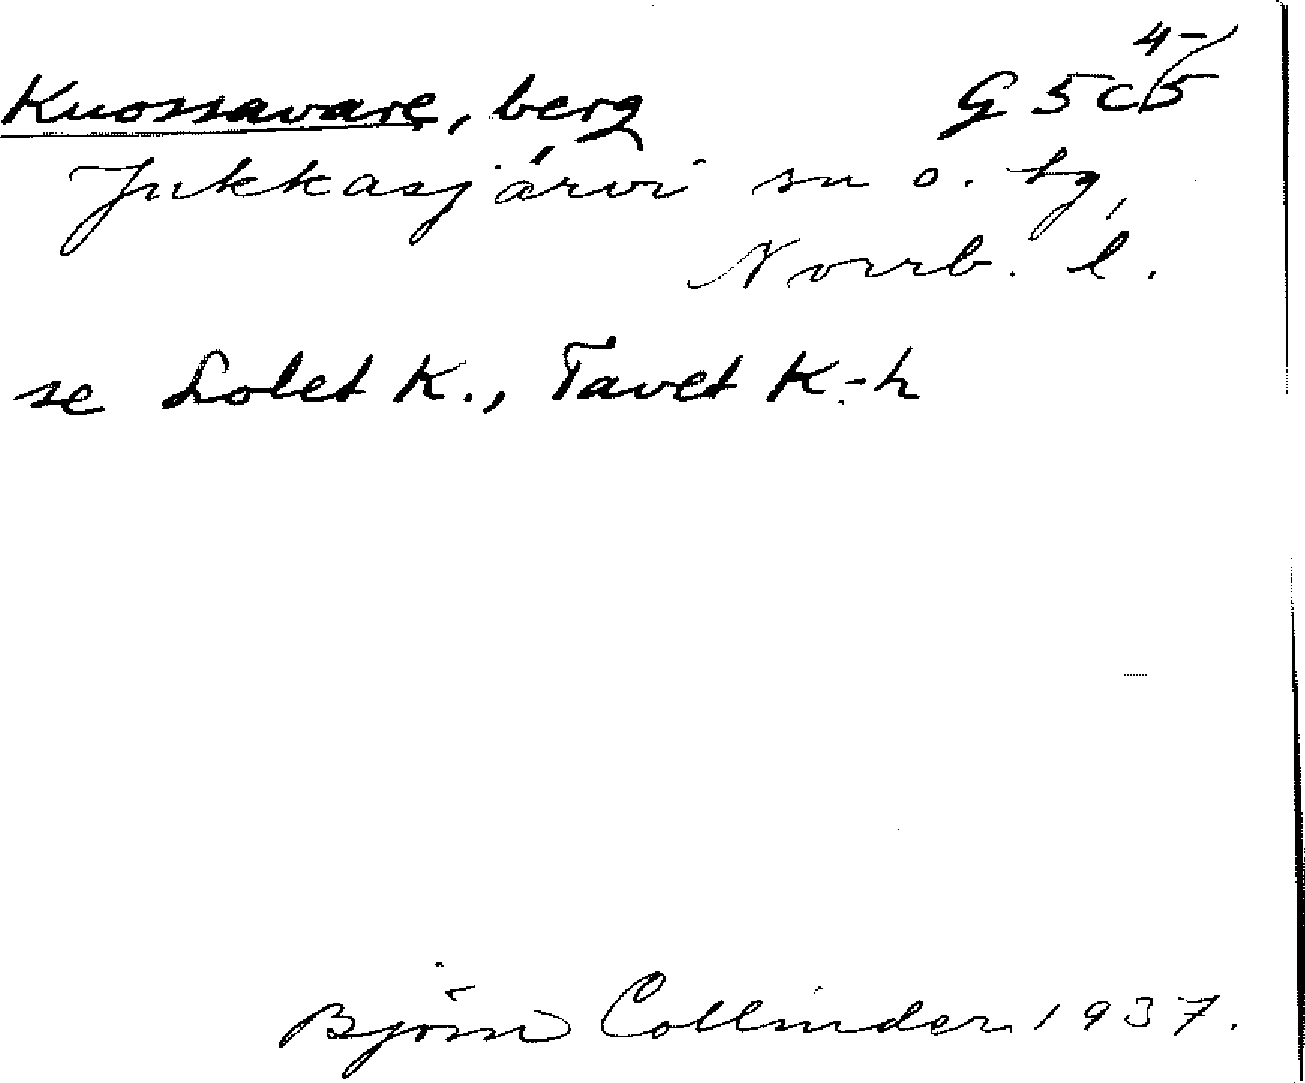 Kuossavare, berg G 5 c 4-/5
Jukkasjärvi sn o. tg,
Norrb. l.
se Lolet K., Tavet K-h
Björn Collinder 1937.